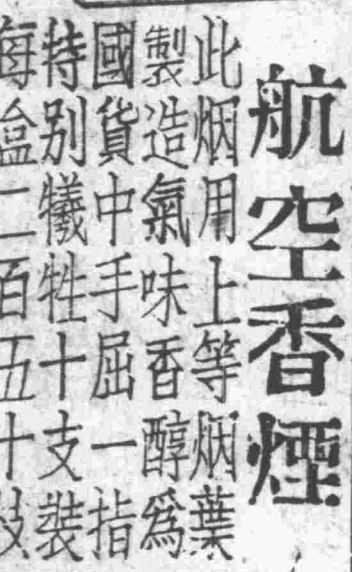 航空香煙
此烟用上等烟葉
製造氣味香醇爲
國貨中手屈一指
特别犧牲十支裝
每盒二百五十枝